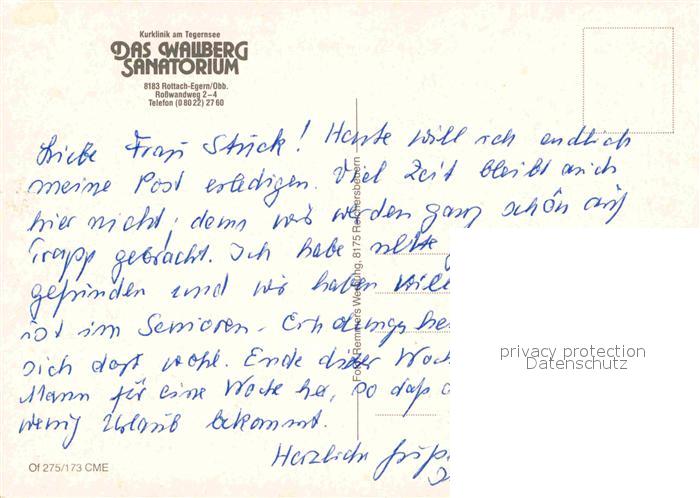 Kurklinik am Tegernsee
DAS WALLBERG
SANATORIUM
8183 Rottach-Egern/Obb.
Roßwandweg 2–4
Telefon (0 80 22) 27 60
Liebe Frau Stuck! Heute will ich endlich
meine Post erledigen. Viel Zeit bleibt auch
hier nicht, denn wir werden ganz schön auf
Trapp gebracht. Ich habe nette
gefunden und wir haben viel
ist im Senioren-Erholungshe
sich dort wohl. Ende dieser Woch
Mann für eine Woche her, so daß
wenig Urlaub bekommt.
Herzliche Grüße
Foto: Remmers Werbung, 8175 Reichersbeuern
privacy protection
Datenschutz
Of 275/173 CME